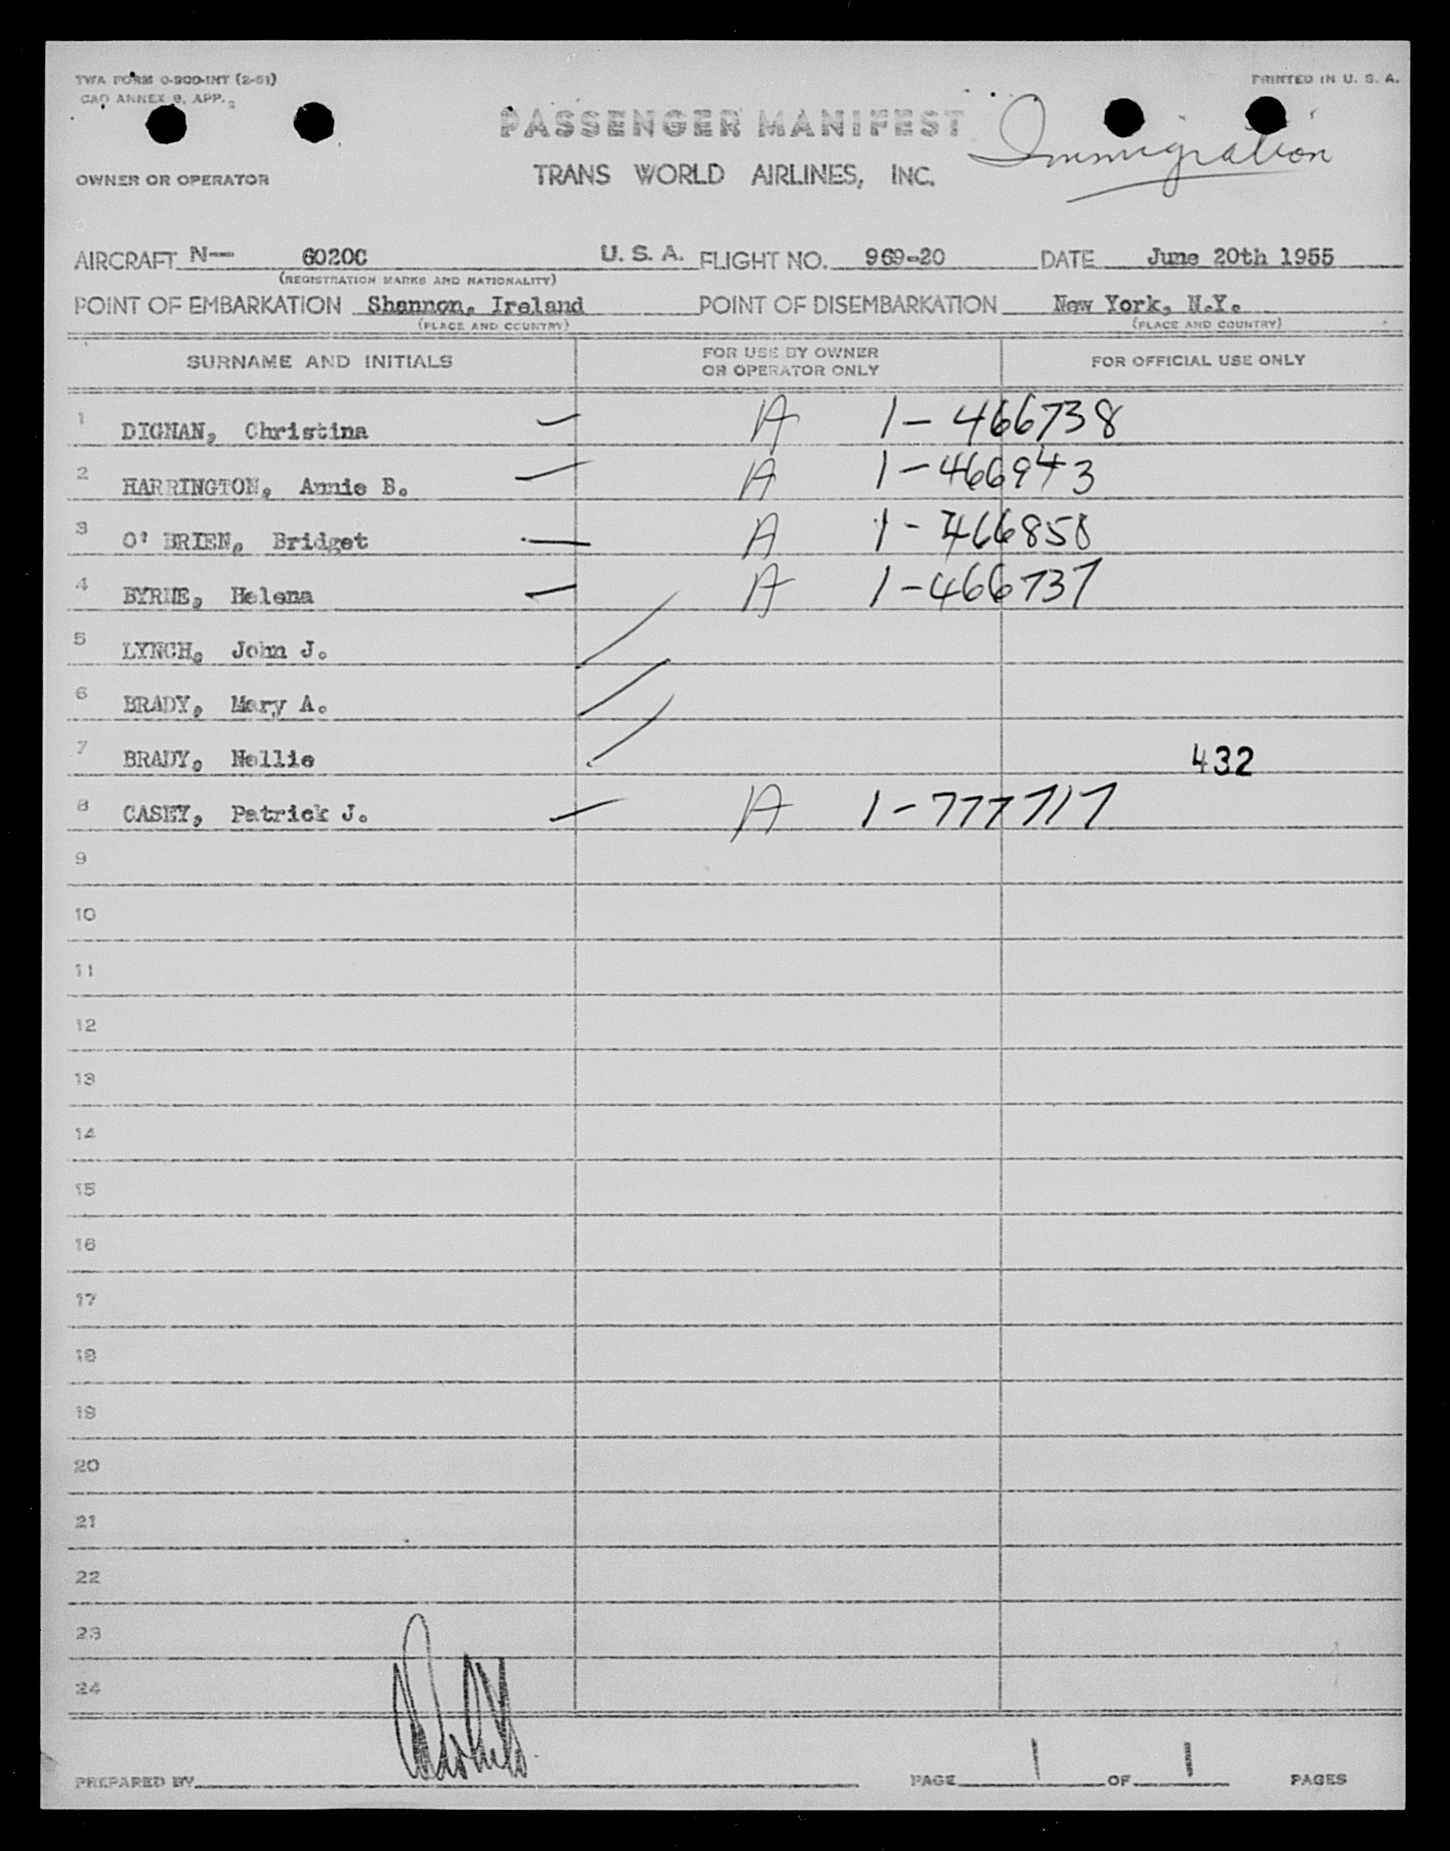 TWA FORM O-900-INT (2-51)
PRINTED IN U. S. A.
CAO ANNEX 9, APP. 2
PASSENGER MANIFEST
Immigration
OWNER OR OPERATOR
TRANS WORLD AIRLINES, INC.
AIRCRAFT N-- 6020C U. S. A. FLIGHT NO. 969-20 DATE June 20th 1955
(REGISTRATION MARKS AND NATIONALITY)
POINT OF EMBARKATION Shannon, Ireland POINT OF DISEMBARKATION New York, N.Y.
(PLACE AND COUNTRY) (PLACE AND COUNTRY)
SURNAME AND INITIALS
FOR USE BY OWNER
OR OPERATOR ONLY
FOR OFFICIAL USE ONLY
1 DIGNAN, Christina A 1-466738
2 HARRINGTON, Annie B. A 1-466943
3 O' BRIEN, Bridget A 1-466858
4 BYRNE, Helena A 1-466737
5 LYNCH, John J.
6 BRADY, Mary A.
7 BRADY, Nellie 432
8 CASEY, Patrick J. A 1-777717
9
10
11
12
13
14
15
16
17
18
19
20
21
22
23
24
PREPARED BY PAGE 1 OF 1 PAGES